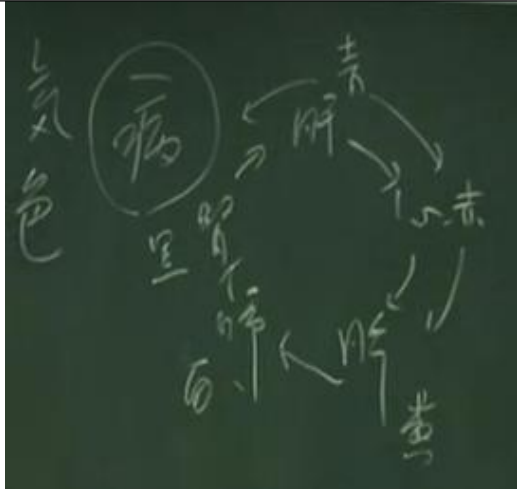 気色
一病
青
肝
心 赤
脾
黄
肺
白
腎
黒